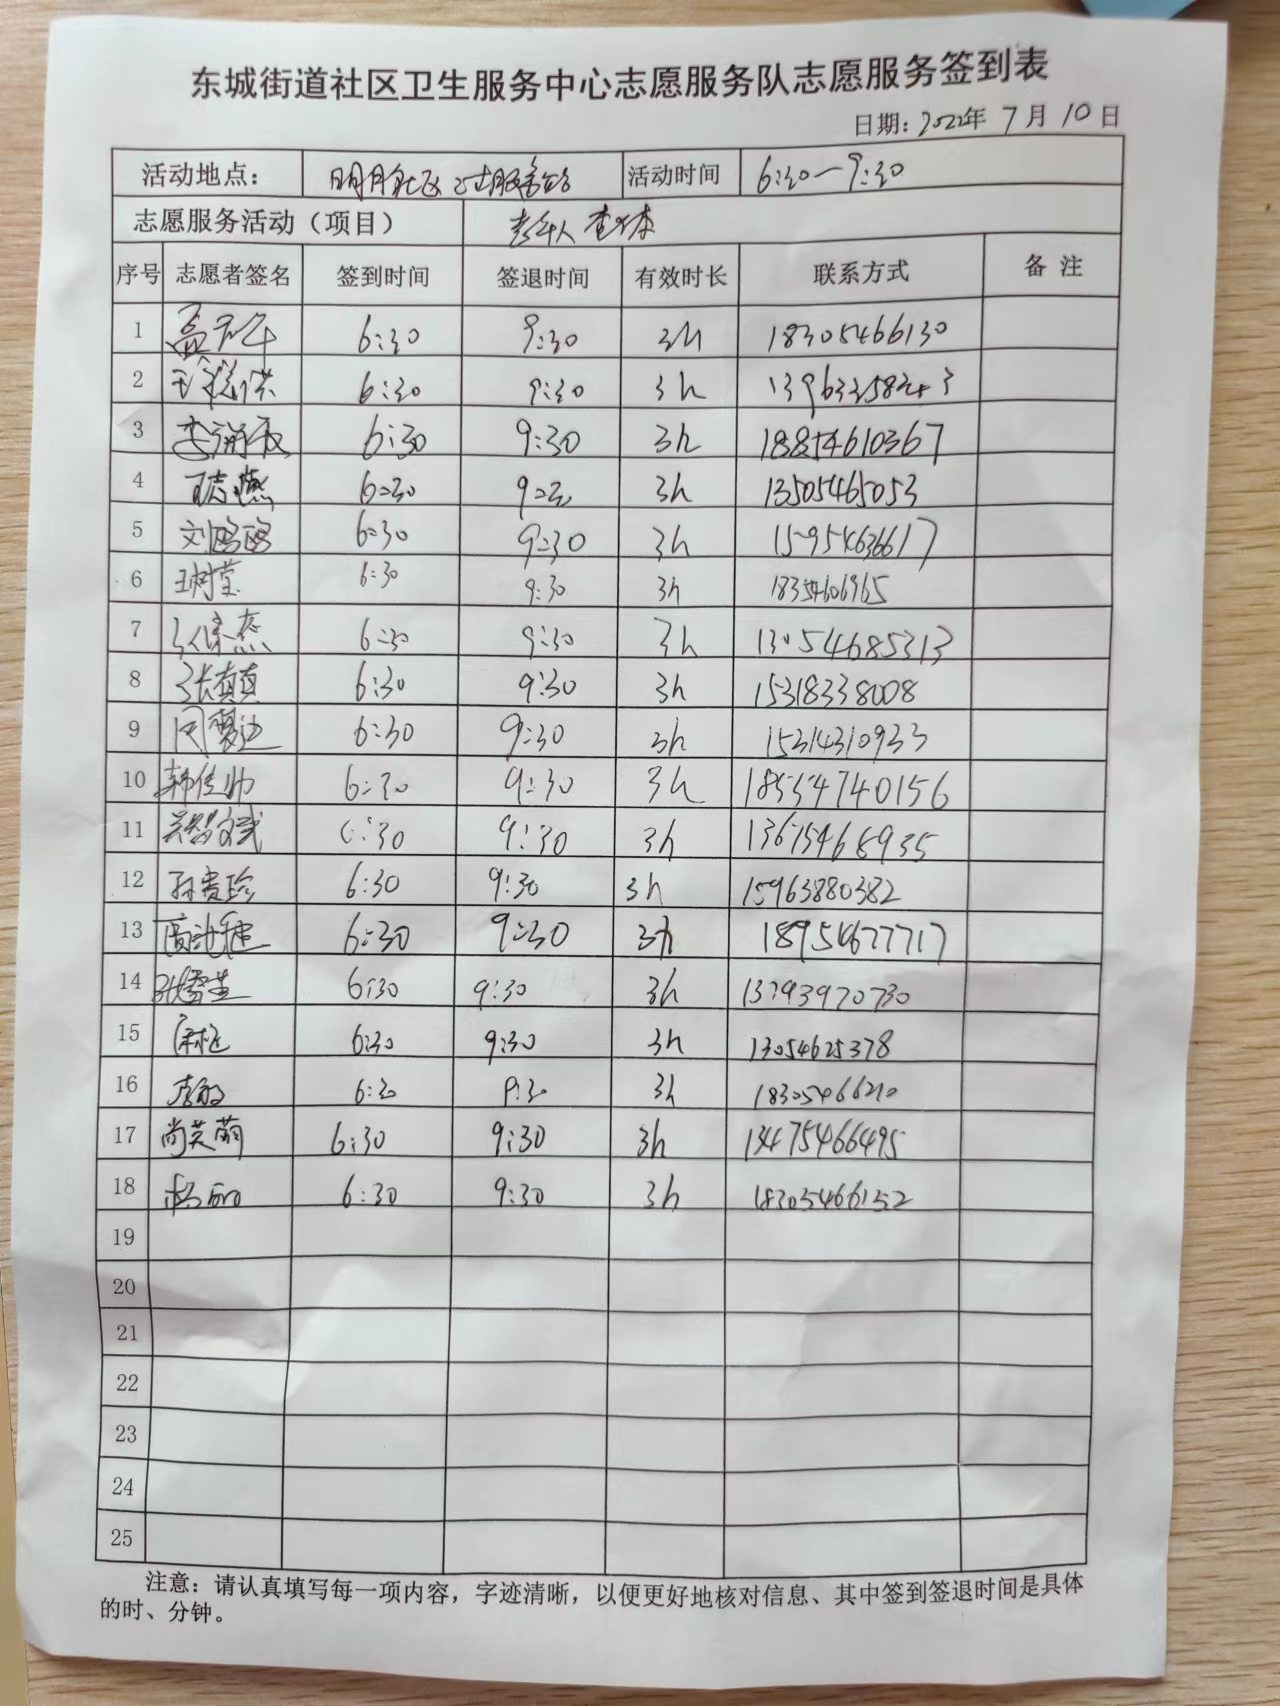 东城街道社区卫生服务中心志愿服务队志愿服务签到表
日期：2022年 7月 10日
活动地点： 明月社区 服务站 活动时间 6:30—9:30
志愿服务活动（项目） 老年人查体
序号 志愿者签名 签到时间 签退时间 有效时长 联系方式 备注
1 6:30 9:30 3h 18305466130
2 6:30 9:30 3h
3 6:30 9:30 3h 18854610367
4 6:30 9:30 3h 13505465053
5 刘鸥鸥 6:30 9:30 3h 15954636617
6 王树莹 6:30 9:30 3h
7 6:30 9:30 3h 13054685313
8 张真真 6:30 9:30 3h 15318338008
9 6:30 9:30 3h 15314310933
10 韩佳帅 6:30 9:30 3h 185547740156
11 6:30 9:30 3h 13675468935
12 孙贵珍 6:30 9:30 3h 15963880382
13 6:30 9:30 3h 18954677717
14 6:30 9:30 3h 13793970730
15 6:30 9:30 3h 13054625378
16 李敏 6:30 9:30 3h 18305466210
17 尚芙蓉 6:30 9:30 3h 13475466495
18 杨丽 6:30 9:30 3h 18305466152
19
20
21
22
23
24
25
注意：请认真填写每一项内容，字迹清晰，以便更好地核对信息、其中签到签退时间是具体
的时、分钟。